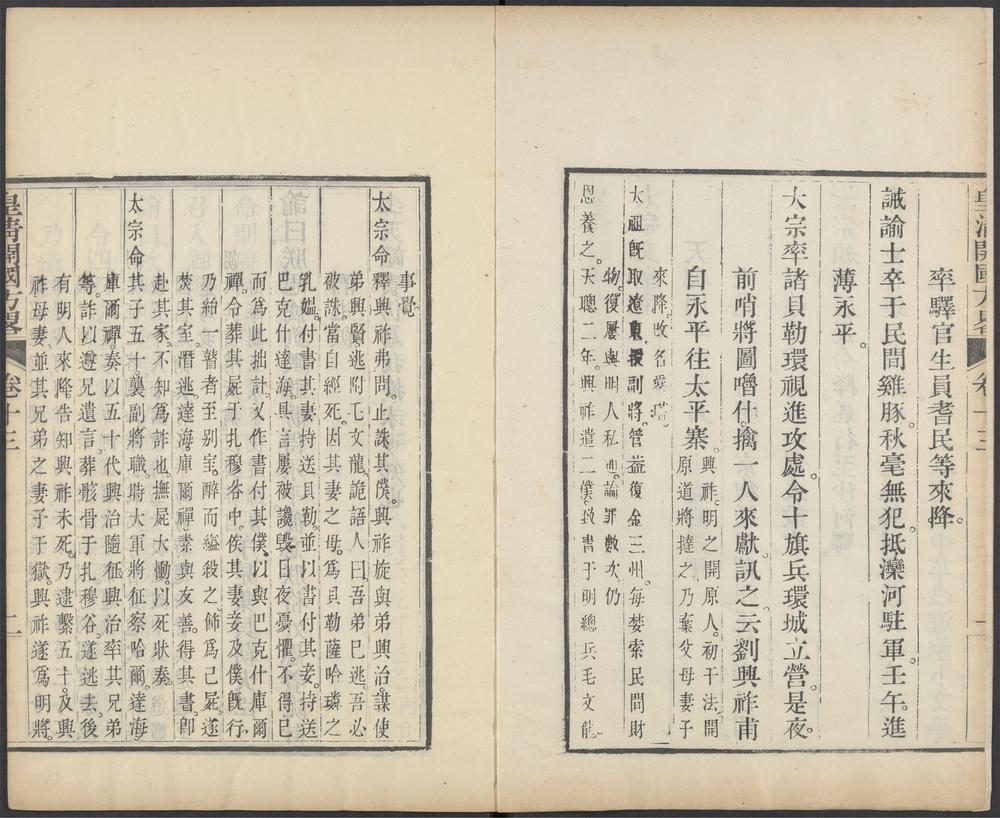 皇清開國方畧 卷十三 一
率驛官生員耆民等來降。
誡諭士卒于民間雞豚。秋毫無犯。抵灤河駐軍。壬午。進
薄永平。
太宗率諸貝勒環視進攻處。令十旗兵環城立營。是夜。
前哨將圖嚕什。擒一人來獻。訊之。云劉興祚甫
自永平往太平寨。興祚。明之開原人。初干法。開
原道將撻之。乃棄父母妻子
來降。改名愛塔。
太祖旣取遼東。擢副將。管葢復金三州。每婪索民間財
物。復屢與明人私通。論罪數次。仍
恩養之。天聰二年。興祚遣二僕。致書于明總兵毛文龍
事覺。
太宗命釋興祚弗問。止誅其僕。興祚旋與弟興治謀使
弟興賢逃附毛文龍。詭語人曰。吾弟已逃。吾必
被誅。當自經死。因其妻之母。爲貝勒薩哈璘之
乳媼。付書其妻。持送貝勒。並以書付其妾。持送
巴克什達海。具言屢被讒毀。日夜憂懼。不得已
而爲此拙計。又作書付其僕。以與巴克什庫爾
禪。令葬其屍于扎穆谷中。俟其妻妾及僕旣行。
乃紿一瞽者至别室。醉而縊殺之。飾爲己屍。遂
焚其室。潛逃。達海。庫爾禪。素與友善。得其書卽
赴其家。不知爲詐也。撫屍大慟。以死狀奏。
太宗命其子五十襲副將職。時大軍將征察哈爾。達海。
庫爾禪。奏以五十代興治隨征。興治率其兄弟
等。詐以遵兄遺言。葬骸骨于扎穆谷。遂逃去。後
有明人來降。告知興祚未死。乃逮繫五十。及興
祚母妻。並其兄弟之妻子于獄。興祚遂爲明將。
皇淸開國方畧 卷十三 二